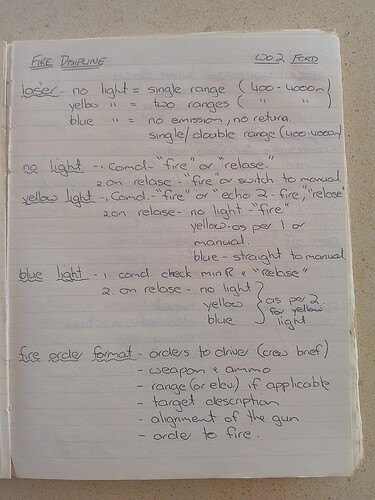 FIRE DISCIPLINE WO2 FORD
laser - no light = single range (400-4000m)
yellow " = two ranges ( " " )
blue " = no emission, no return
single/double range (400-4000m)
no light - 1. comd - "fire" or "relase"
2. on relase - "fire" or switch to manual
yellow light - 1. Comd - "fire" or "echo 2 - fire", "relase"
2. on relase - no light - "fire"
yellow - as per 1 or
manual.
blue - straight to manual
blue light - 1 comd. check min R & "relase"
2. on relase - no light
yellow } as per 2
for yellow
blue light
fire order format - orders to driver (crew brief)
- weapon & ammo
- range (or elev) if applicable
- target description
- alignment of the gun
- order to fire.